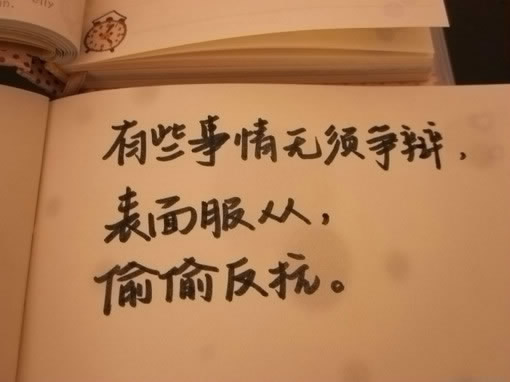 elly
n.
有些事情无须争辩，
表面服从，
偷偷反抗。